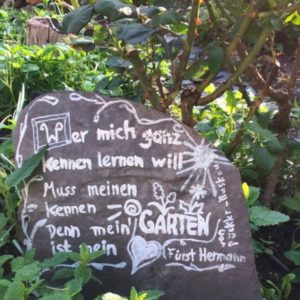 Wer mich ganz
kennen lernen will
Muss meinen
GARTEN
kennen
Denn mein GARTEN
ist mein
Fürst Hermann
von Pückler-Muskau